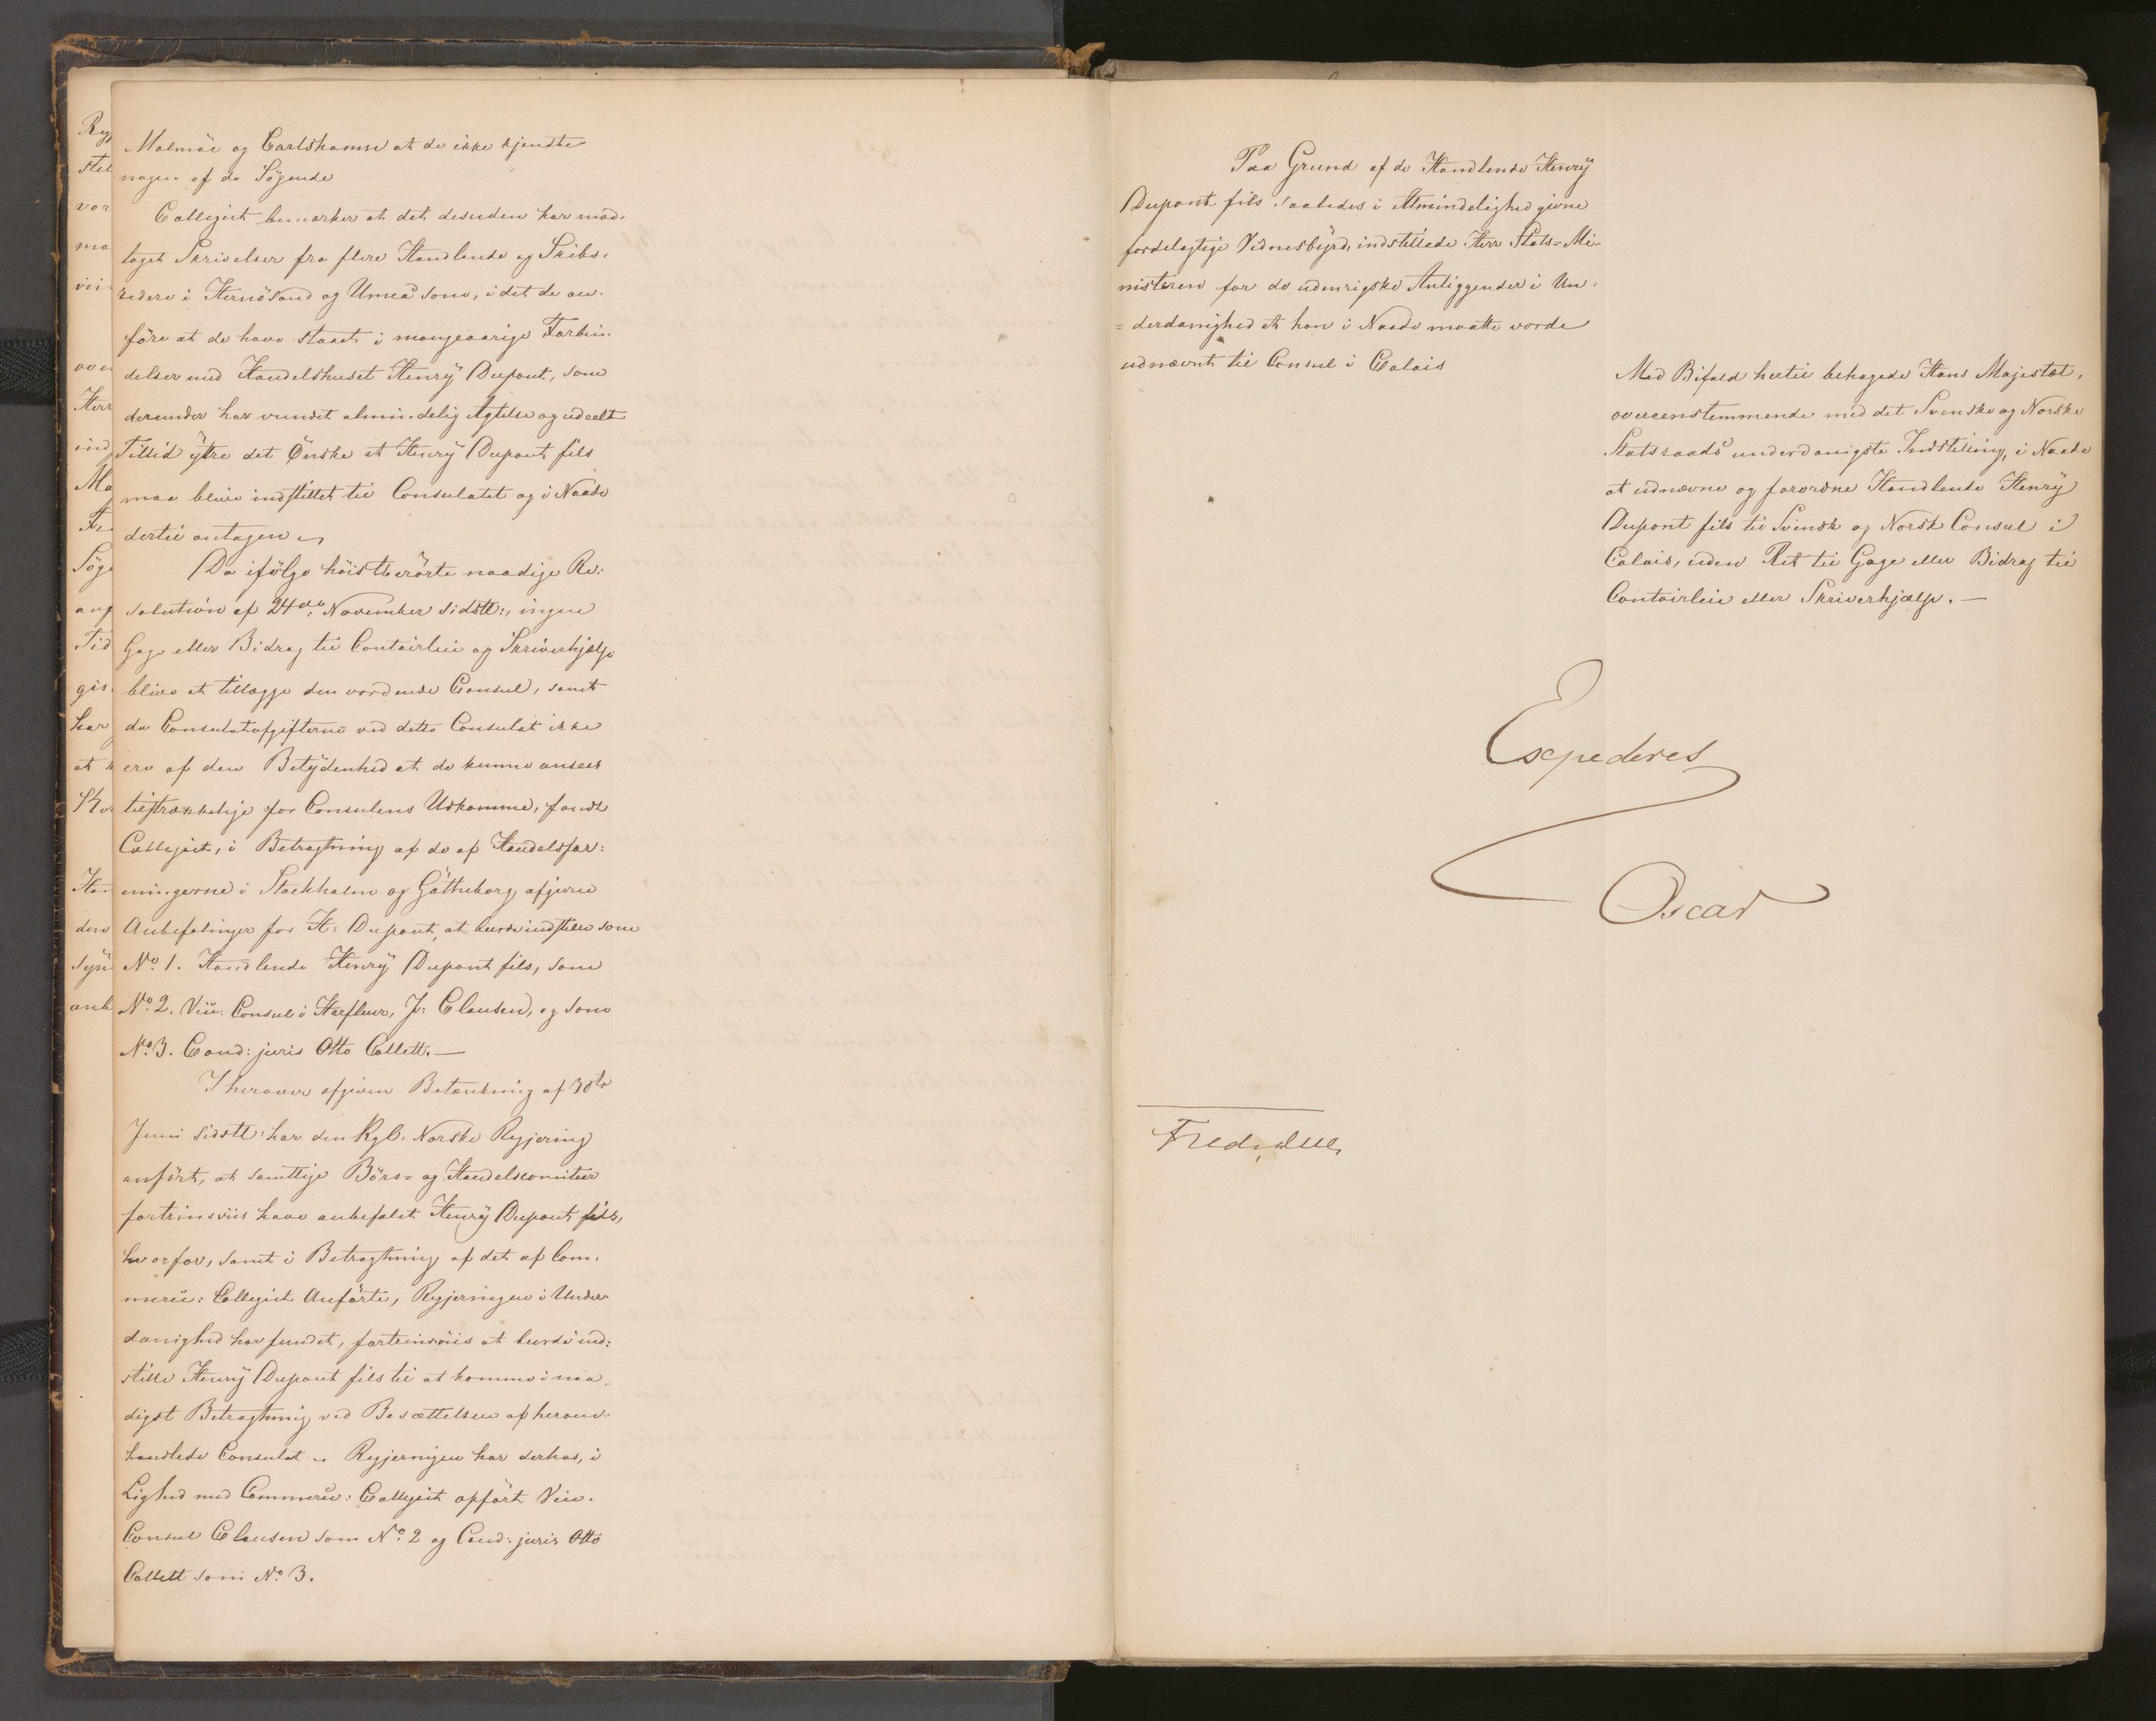 Malmöe og Carlshamn at de ikke kjendte
nogen af de Sögende
Collegiet bemærker at det desuden har mod-
taget Skrivelser fra flere Handlende og Skibs-
redere i Hernösand og Umeå som, i det de an-
före at de have staaet i mangeaarige Forbin-
delser med Handelshuset Henrÿ Dupont, som
derunder har vundet almindelig Agtelse og udeelt
Tillid ÿtre det Önske at Henrÿ Dupont fils
maa blive indstillet til Consulatet og i Naade
dertil antagen
Da ifölge höistberörte naadige Re:
solution af 24de November sidstl:, ingen
Gage eller Bidrag til Contoirleie og Skriverhjelp
blive at tillægge den vordende Consul, samt
da Consulatafgifterne ved dette Consulat ikke
ere af den Betÿdenhed at de kunne ansees
tilstrækkelige for Consulens Udkomme, fandt
Collegiet, i Betragtning af de af Handelsfor:
eningerne i Stockholm og Götheborg afgivne
Anbefalinger for H: Dupont, at burde indstille som
No. 1. Handlende Henrÿ Dupont fils, som
No. 2. Vice: Consul i Harfleur, J: Clausen, og som
No. 3. Cand: juris Otto Collett. —
I herover afgiven Betænkning af 30te
Juni sidstl: har den Kgl: Norske Regjering
anfört, at samtlige Börs- og Handelscomiteer
fortrinsviis have anbefalet Henrÿ Dupont fils,
hvorfor, samt i Betragtning af det af Com-
merce: Collegiet Anförte, Regjeringen i Under-
danighed har fundet, fortrinsviis at burde ind:
stille Henrÿ Dupont fils til at komme i naa-
digst Betragtning ved Besættelsen af heromr-
handlede Consulat Regjeringen har derhos, i
Lighed med Commerce: Collegiet opfört Vice-
Consul Clausen som No. 2 og Cand: juris Otto
Collett som No. 3.
Paa Grund af de Handlende Henrÿ
Dupont fils saaledes i Almindelighed givne
fordelagtige Vidnesbÿrd, indstillede Herr Stats-Mi-
nisteren for de udenrigske Anliggender i Un-
=derdanighed at han i Naade maatte vorde
udnævnt til Consul i Calais
Med Bifald hertil behagede Hans Majestæt,
overeenstemmende med det Svenske og Norske
Statsraads underdanigste Indstilling, i Naade
at udnævne og forordne Handlende Henrÿ
Dupont fils til Svensk og Norsk Consul i
Calais, uden Ret til Gage eller Bidrag til
Contoirleie eller Skriverhjælp. —
Expederes
Oscar
Fredr. Due